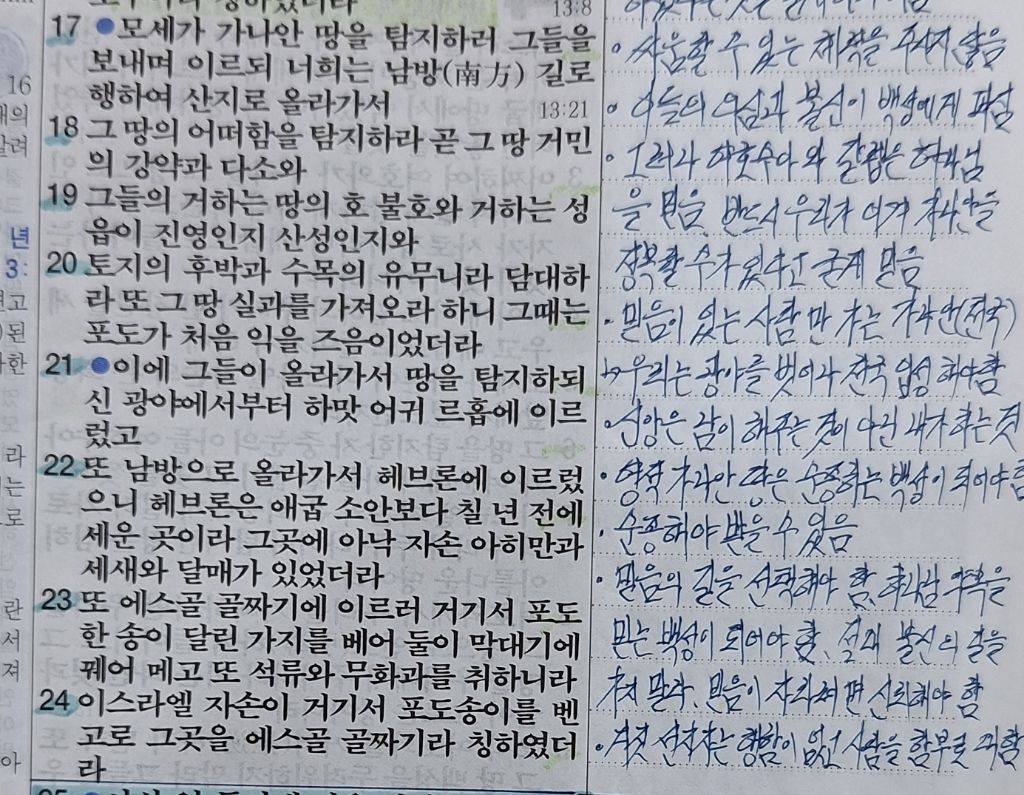 13:8
17 ●모세가 가나안 땅을 탐지하러 그들을
보내며 이르되 너희는 남방(南方) 길로
행하여 산지로 올라가서 13:21
18 그 땅의 어떠함을 탐지하라 곧 그 땅 거민
의 강약과 다소와
19 그들의 거하는 땅의 호 불호와 거하는 성
읍이 진영인지 산성인지와
20 토지의 후박과 수목의 유무니라 담대하
라 또 그 땅 실과를 가져오라 하니 그때는
포도가 처음 익을 즈음이었더라
21 ●이에 그들이 올라가서 땅을 탐지하되
신 광야에서부터 하맛 어귀 르홉에 이르
렀고
22 또 남방으로 올라가서 헤브론에 이르렀
으니 헤브론은 애굽 소안보다 칠 년 전에
세운 곳이라 그곳에 아낙 자손 아히만과
세새와 달매가 있었더라
23 또 에스골 골짜기에 이르러 거기서 포도
한 송이 달린 가지를 베어 둘이 막대기에
꿰어 메고 또 석류와 무화과를 취하니라
24 이스라엘 자손이 거기서 포도송이를 벤
고로 그곳을 에스골 골짜기라 칭하였더
라
16
년
3:
라
란
서
져
아
• 싸울할 수 있는 제작을 주시지 않음
• 이들의 의심과 불신이 백성에게 퍼짐
• 그러나 여호수아와 갈렙은 하나님
을 믿음. 반드시 우리가 이겨 가나안을
정복할 수가 있다고 굳게 믿음
• 믿음이 있는 사람만 가는 가나안(천국)
↳ 우리는 광야를 벗어나 천국 입성 해야함
• 신앙은 남이 해주는 것이 아닌 내가 하는 것
• 영적 가나안 땅은 순종하는 백성이 되어야 함
• 순종해야 받을 수 있음
• 믿음의 길을 선택해야 함. 하나님 약속을
믿는 백성이 되어야 함. 절대 불신의 길을
가지 말라. 믿음이 자라려면 신뢰해야 함
• 거짓 선지자는 행함이 없고 사람을 함부로 대함